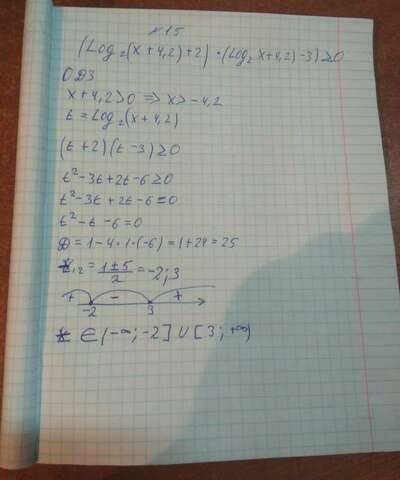 № 15
(Log₂(x+4,2)+2)·(Log₂x+4,2)-3)≥0
ОДЗ
x+4,2>0 => x>-4,2
t = Log₂(x+4,2)
(t+2)(t-3)≥0
t²-3t+2t-6≥0
t²-3t+2t-6=0
t²-t-6=0
D=1-4·1·(-6)=1+24=25
t₁,₂ = (1±5)/2 = -2;3
+ - +
-2 3
t ∈ (-∞; -2] ∪ [3; +∞)